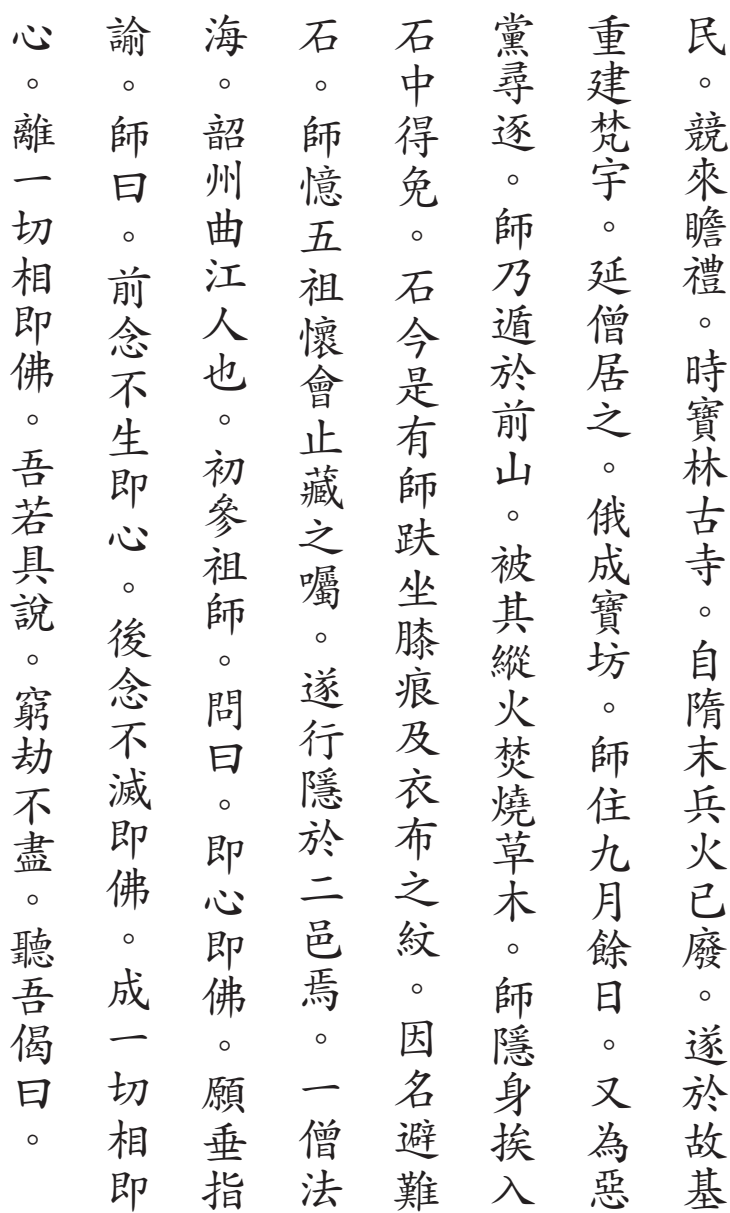 民。競來瞻禮。時寶林古寺。自隋末兵火已廢。遂於故基
重建梵宇。延僧居之。俄成寶坊。師住九月餘日。又為惡
黨尋逐。師乃遁於前山。被其縱火焚燒草木。師隱身挨入
石中得免。石今是有師趺坐膝痕及衣布之紋。因名避難
石。師憶五祖懷會止藏之囑。遂行隱於二邑焉。一僧法
海。韶州曲江人也。初參祖師。問曰。即心即佛。願垂指
諭。師曰。前念不生即心。後念不滅即佛。成一切相即
心。離一切相即佛。吾若具說。窮劫不盡。聽吾偈曰。